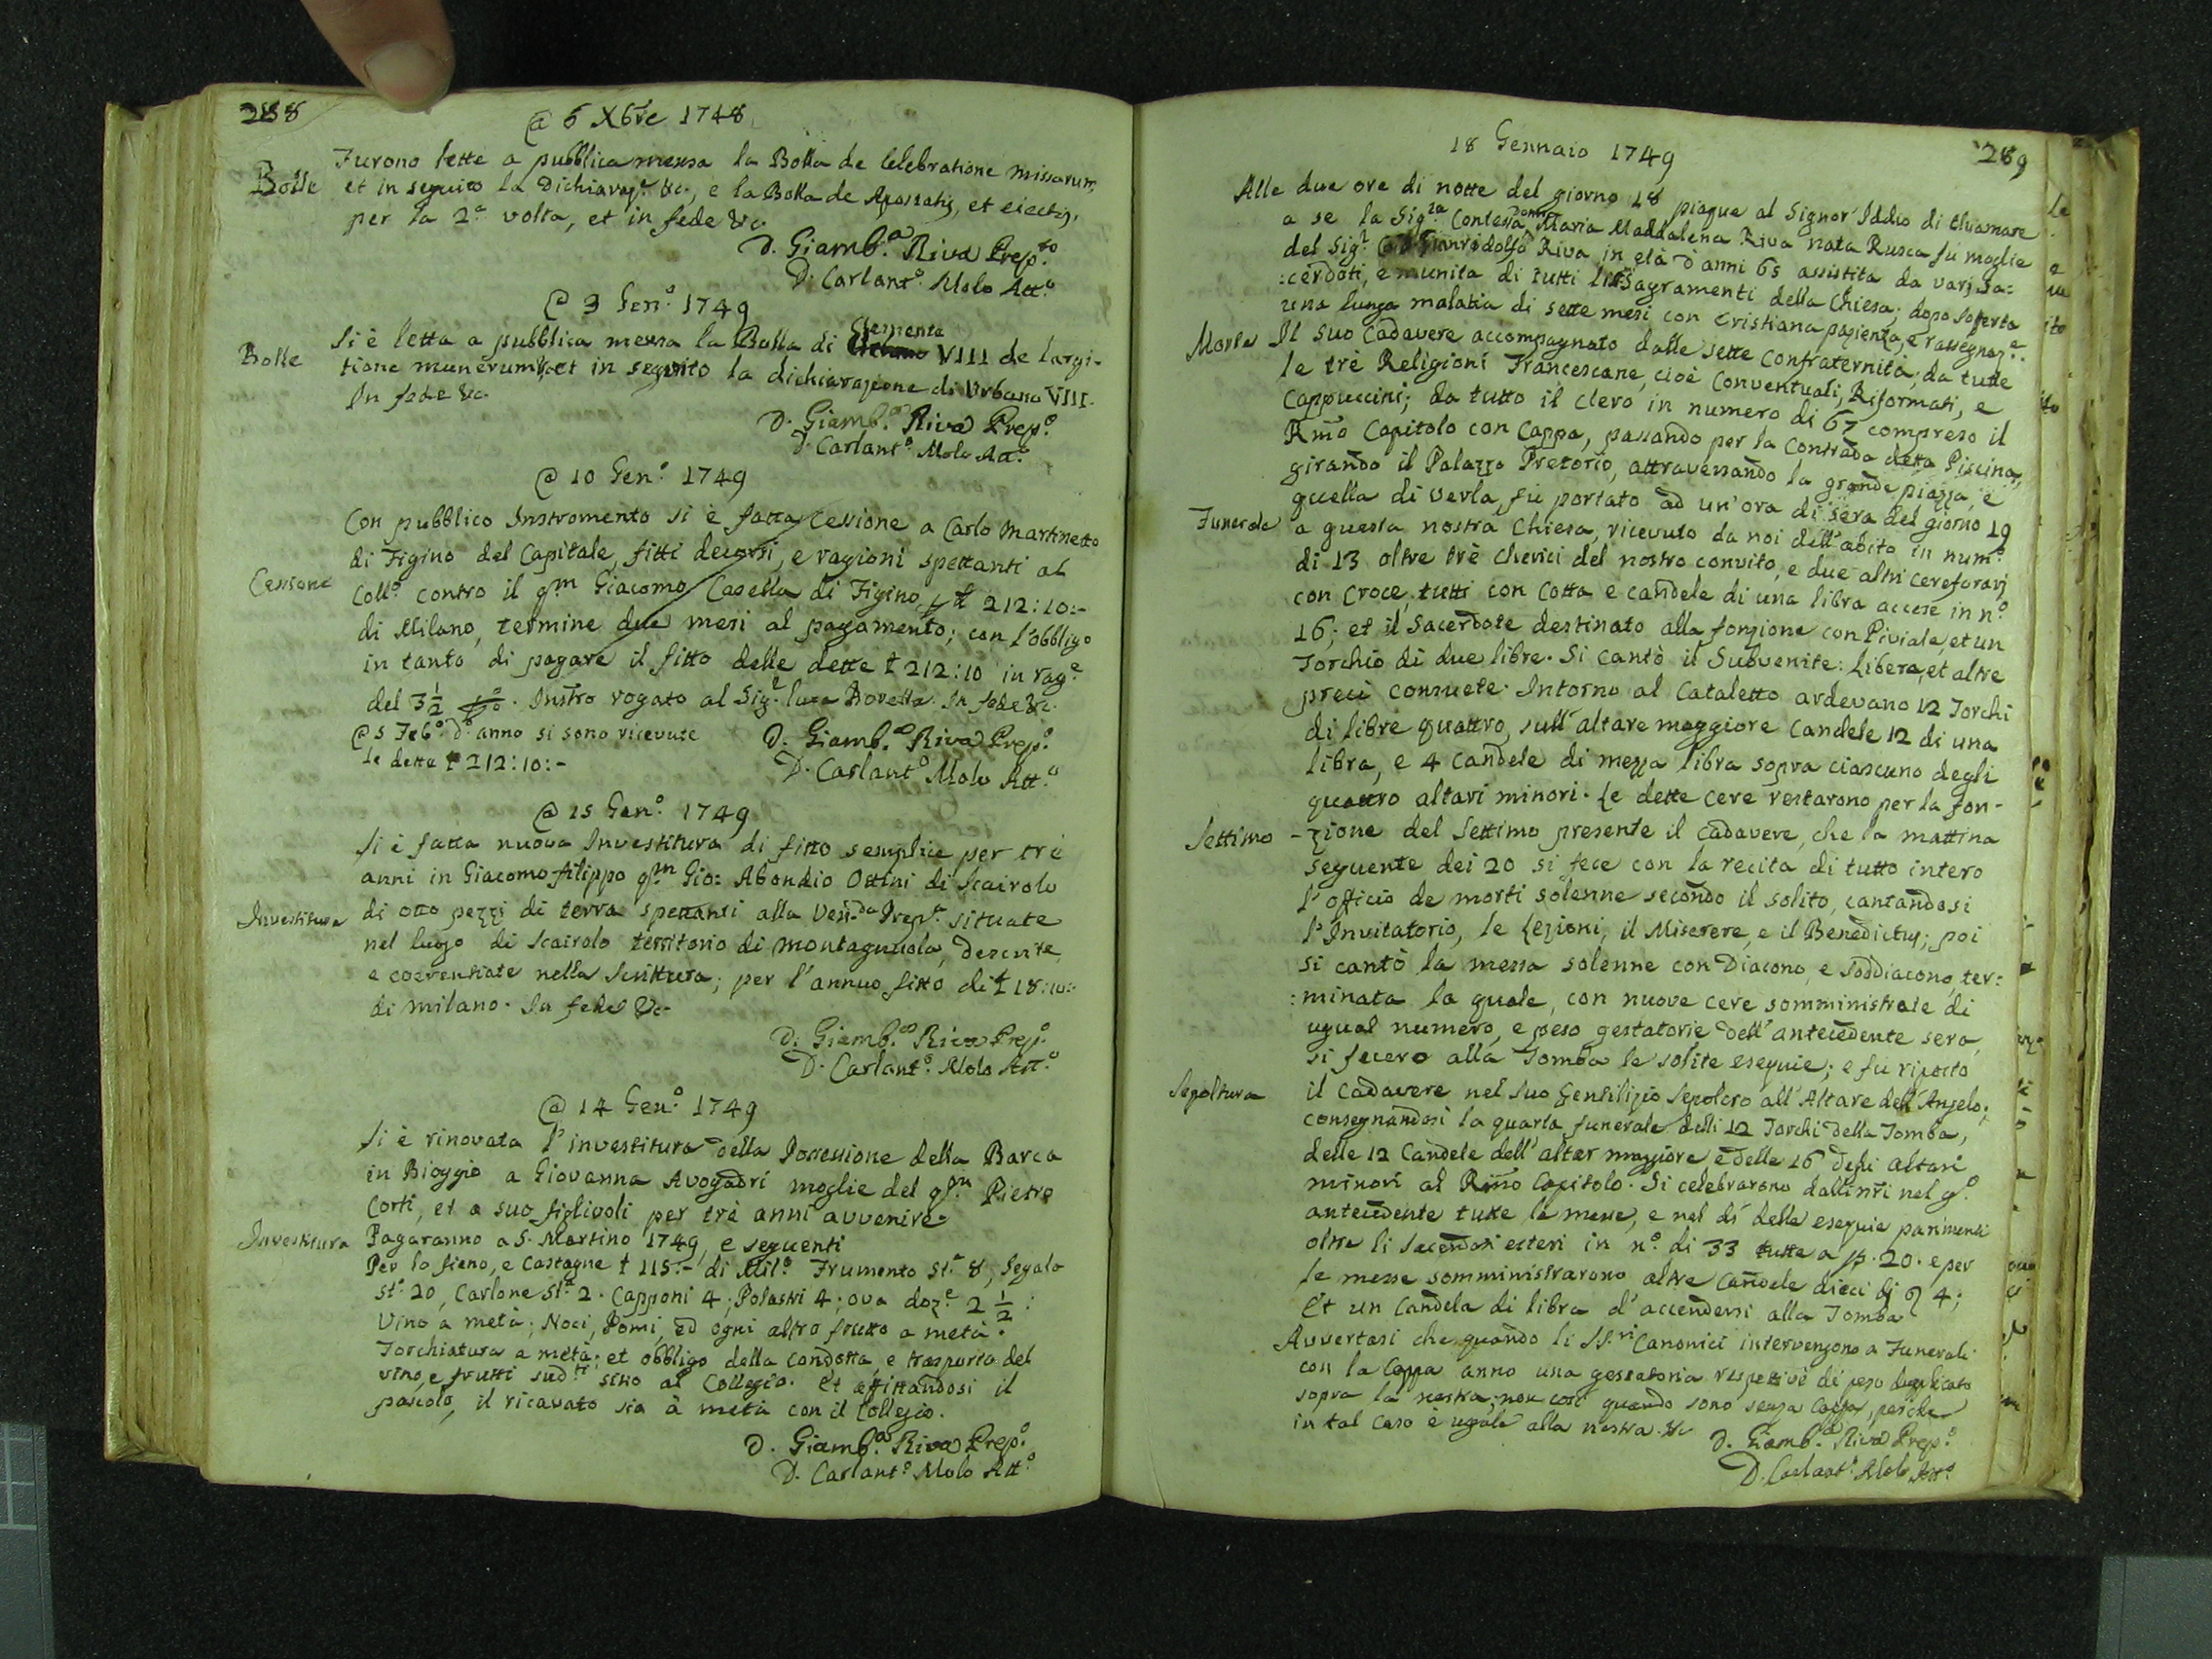 288
@ 6 Xbre 1748
Furono lette a pubblica mensa la Bolla de Celebratione missarum,
Bolle
et in seguito la Dichiaraz.e &c., e la Bolla de Apostatis, et eiectis,
per la 2.a volta, et in fede &c.
D. Giamb.a Riva Prep.to
D. Carlant.o Molo Att.o
@ 3 Gen.o 1749
Si è letta a pubblica mensa la Bolla di Clemente VIII de largi-
Bolle
tione munerum &c. et in seguito la dichiarazione di Urbano VIII.
In fede &c.
D. Giamb.a Riva Prep.o
D. Carlant.o Molo Att.o
@ 10 Gen.o 1749
Con pubblico Instromento si è fatta Cessione a Carlo Martinetto
di Figino del Capitale, fitti decorsi, e ragioni spettanti al
Cessione
Coll.o contro il q.m Giacomo Casella di Figino £ 212:10:-
di Milano, termine due mesi al pagamento; con l'obbligo
in tanto di pagare il fitto delle dette £ 212:10 in rag.e
del 3 1/2 p%. Instro rogato al Sig.r Luca Bovella. In fede &c.
@ 5 Feb.o d.o anno si sono ricevute
le dette £ 212:10:-
D. Giamb.a Riva Prep.o
D. Carlant.o Molo Att.o
@ 15 Gen.o 1749
Si è fatta nuova Investitura di fitto semplice per trè
anni in Giacomo filippo q.m Gio: Abondio Ostini di Scairolo
Investitura
di otto pezzi di terra spettanti alla Ven.da Prep.ra situate
nel luogo di Scairolo territorio di Montagnuola, descritte,
e coerentiate nella Scrittura; per l'annuo fitto di £ 18:10:-
di Milano. In fede &c.
D. Giamb.a Riva Prep.o
D. Carlant.o Molo Att.o
@ 14 Gen.o 1749
Si è rinovata l'investitura della Possessione della Barca
in Bioggio a Giovanna Avogadri moglie del q.m Pietro
Corti, et a suo figlivoli per trè anni avvenire
Investitura
Pagaranno a S. Martino 1749, e seguenti
Per lo fieno, e Castagne £ 115:- di Mil.o Frumento St.a 8, Segala
St.a 20, Carlone St.a 2. Capponi 4; Polastri 4; ova doz.e 2 1/2:
Vino a metà; Noci, Pomi, ed ogni altro frutto a metà.
Torchiatura a metà; et obbligo della condotta, e trasporto del
vino, e frutti sud.ti sino al Collegio. Et affittandosi il
pascolo, il ricavato sia à metà con il Collegio.
D. Giamb.a Riva Prep.o
D. Carlant.o Molo Att.o
289
18 Gennaio 1749
Alle due ore di notte del giorno 18 piaque al Signor Iddio di chiamare
a se la Sig.ra Contessa Donna Maria Maddalena Riva nata Rusca fù moglie
del Sig.r Gianridolfo Riva in età d'anni 65 assistita da varj Sa:
:cerdoti, e munita di tutti li SS. Sagramenti della Chiesa; dopo soferta
una lunga malatia di sette mesi con cristiana pazienza, e rassegnaz.e.
Morte
Il suo Cadavere accompagnato dalle sette Confraternità, da tutte
le trè Religioni Francescane, cioè Conventuali, Riformati, e
Cappuccini; da tutto il Clero in numero di 67 compreso il
Rmo Capitolo con Cappa, passando per la Contrada detta Piscina,
girando il Palazzo Pretorio, attraversando la grande piazza, e
quella di Verla, fù portato ad un'ora di sera del giorno 19
Funerale
a questa nostra Chiesa, ricevuto da noi dell'abito in num.o
di 13 oltre trè cherici del nostro convito, e due altri ceroferarj
con Croce, tutti con Cotta e candele di una libra accese in n.o
16; et il Sacerdote destinato alla fonzione con Piviale, et un
Torchio di due libre. Si cantò il Subvenite: Libera, et altre
preci consuete. Intorno al Cataletto ardevano 12 Torchi
di libre quattro, sull'altare maggiore Candele 12 di una
libra, e 4 candele di mezza libra sopra ciascuno degli
quattro altari minori. Le dette cere restarono per la fon-
Settimo
-zione del Settimo presente il cadavere, che la mattina
seguente dei 20 si fece con la recita di tutto intero
l'officio de morti solenne secondo il solito, cantandosi
l'Invitatorio, le Lezioni, il Miserere, e il Benedictus; poi
si cantò la messa solenne con Diacono, e Soddiacono, ter:
:minata la quale, con nuove cere somministrate di
ugual numero, e peso gestatorie dell'antecedente sera,
si fecero alla Tomba le solite esequie; e fù riposto
Sepoltura
il Cadavere nel suo Gentilizio Sepolcro all'Altare dell'Angelo;
consegnandosi la quarta funerale delli 12 Torchi della Tomba,
delle 12 Candele dell'altar maggiore e delle 16 degli altari
minori al Rmo Capitolo. Si celebrarono dalli nri nel g.o
antecedente tutte le messe, e nel dì delle esequie parimenti
oltre li Sacerdoti esteri in n.o di 33 tutte a p. 20. e per
le messe somministrarono altre Candele dieci di 4;
Et un Candela di libra d'accendersi alla Tomba
Avvertasi che quando li SS.ri Canonici intervengono a Funerali
con la Cappa anno una gestatoria respettive di peso duplicato
sopra la nostra; non così quando sono senza Cappa, perche
in tal caso è uguale alla nostra. &c.
D. Giamb.a Riva Prep.o
D. Carlant.o Molo Att.o